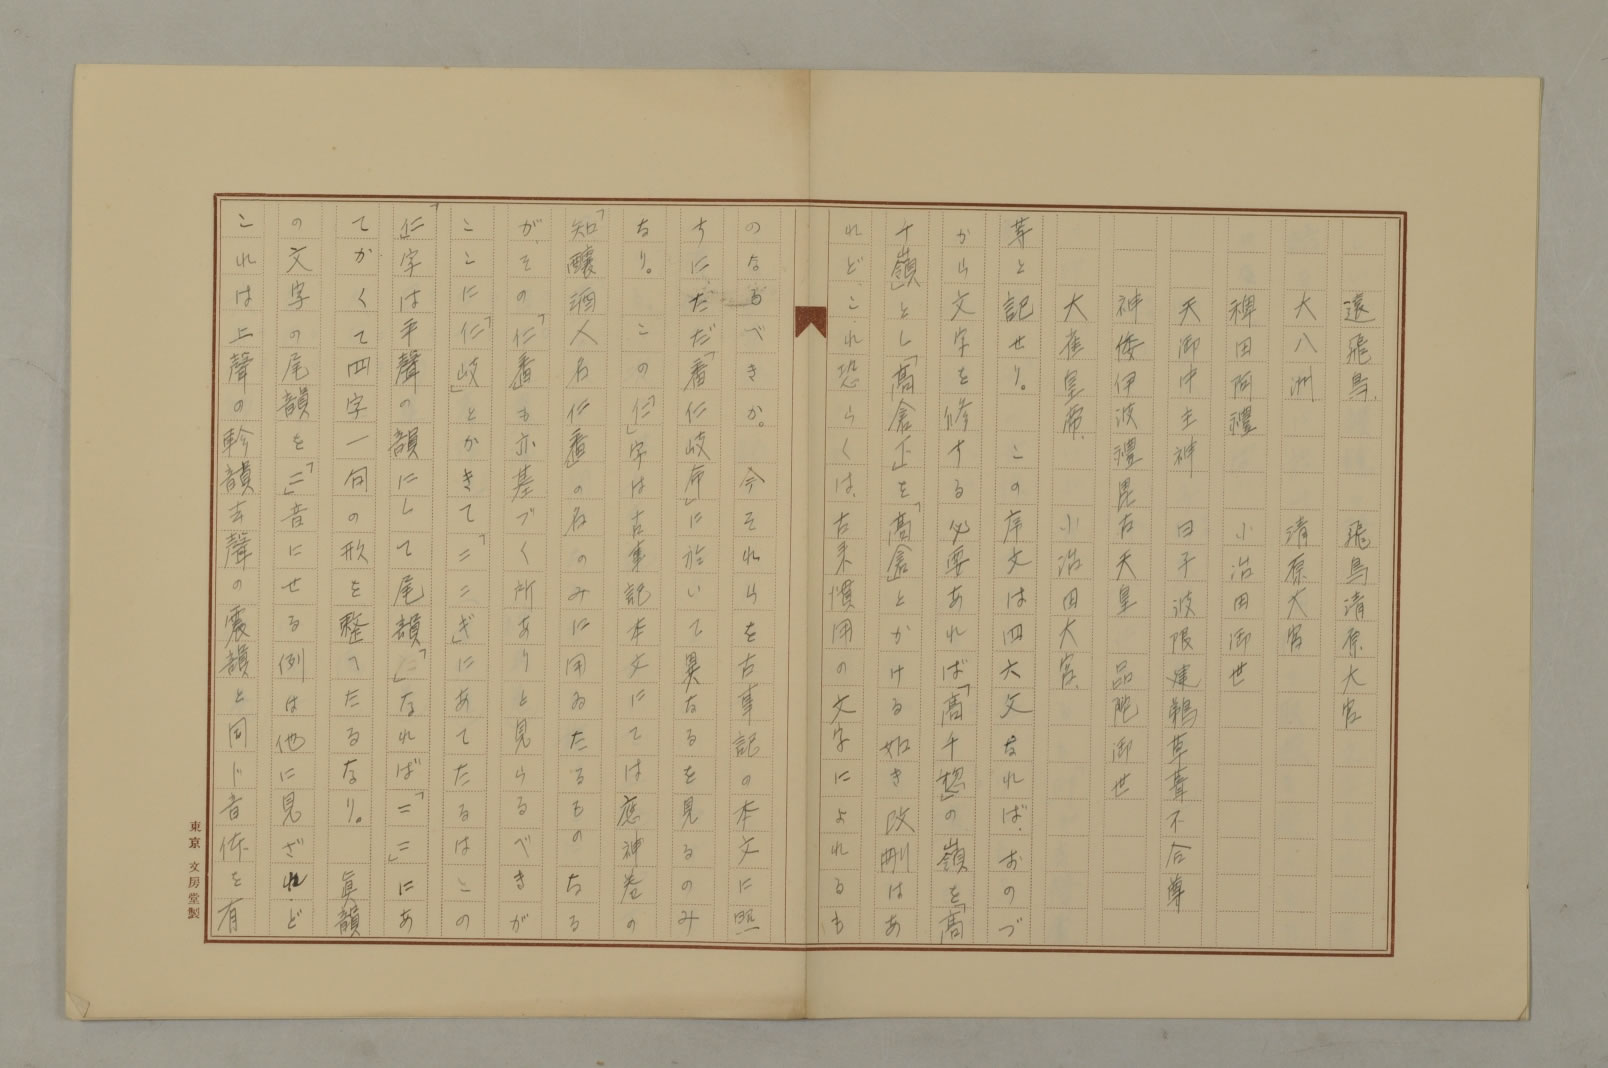 遠飛鳥、　飛鳥清原大宮
大八洲　清原大宮
稗田阿禮　小治田御世
天御中主神　日子波限建鵜草葺不合尊
神倭伊波禮毘古天皇　品陀御世
大雀皇帝、　小治田大宮、
等と記せり。　この序文は四六文なれば、おのづ
から文字を修する必要あれば「高千穂」の嶺を「高
千嶺」とし「高倉下」を「高倉」とかける如き改刪はあ
れど、これ恐らくは、古来慣用の文字によれるも
のなるべきか。　今それらを古事記の本文に照
すにただ「番仁岐命」に於いて異なるを見るのみ
なり。　この「仁」字は古事記本文にては應神巻の
「知醸酒人名仁番」の名のみに用ゐたるものなる
が、その「仁番」も亦基づく所ありと見らるべきが
ここに「仁岐」とかきて「ニニぎ」にあてたるはこの
「仁」字は平聲の韻にして尾韻「に」なれば「ニニ」にあ
てかくて四字一句の形を整へたるなり。　眞韻
の文字の尾韻を「ニ」音にせる例は他に見ざれど
これは上聲の軫韻去聲の震韻と同じ音体を有
東京　文房堂製